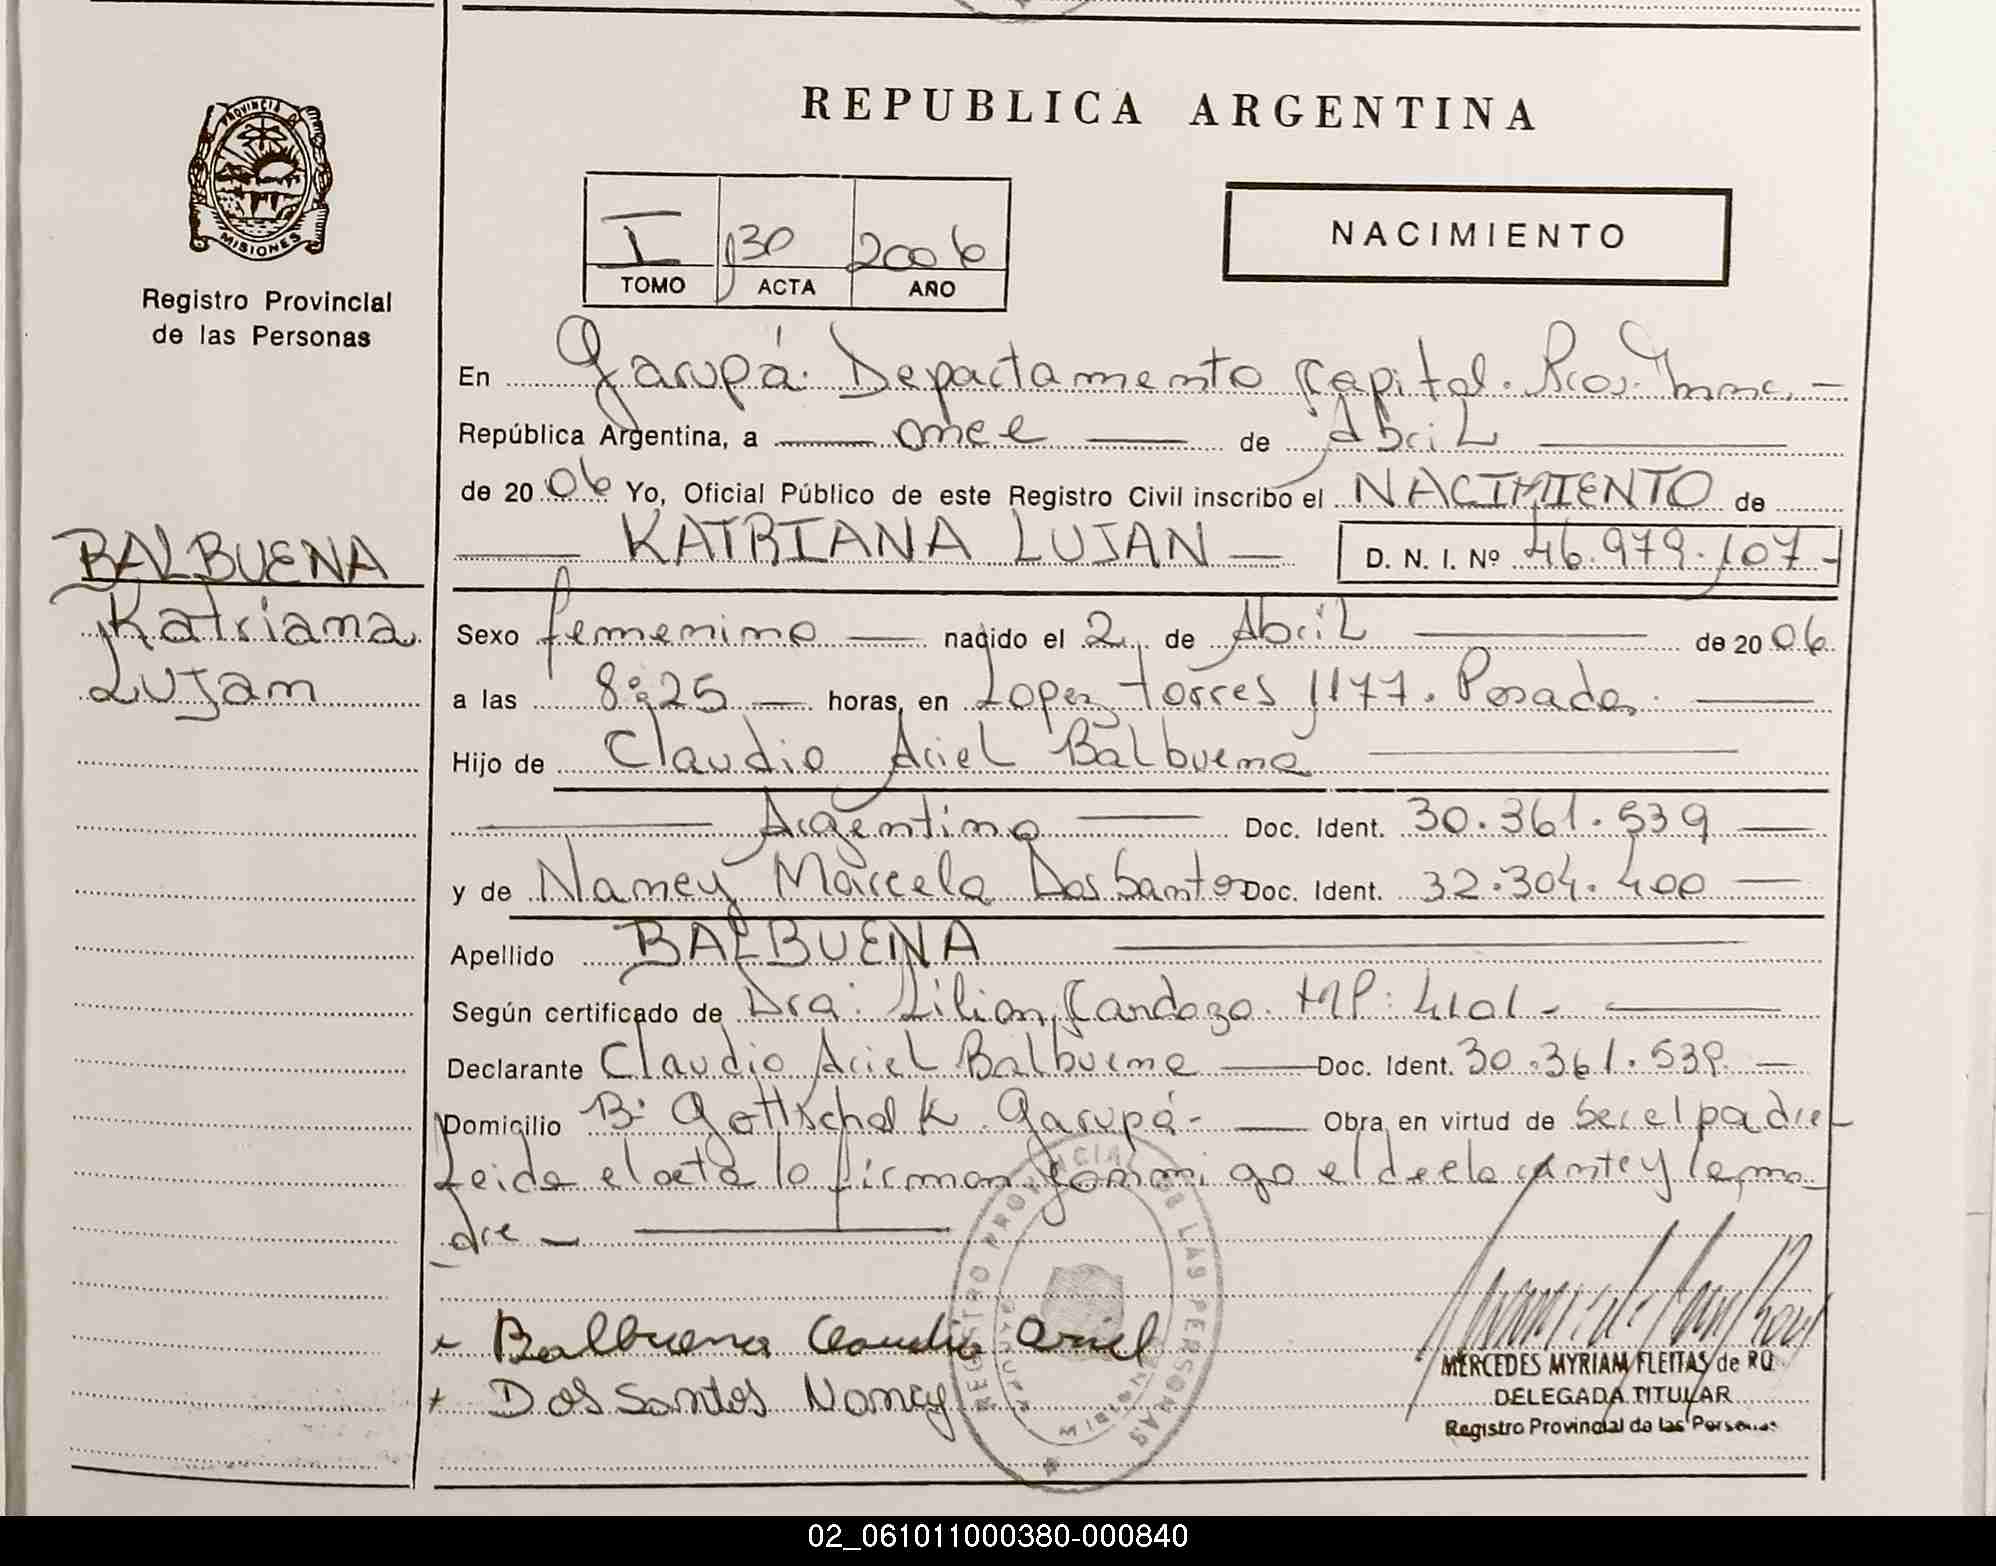 REPUBLICA ARGENTINA
PROVINCIA DE
MISIONES
Registro Provincial
de las Personas
I 130 2006
TOMO ACTA AÑO
NACIMIENTO
En Garupá. Departamento Capital. Pcia. Mnes. —
República Argentina, a — once — de Abril —
de 2006 Yo, Oficial Público de este Registro Civil inscribo el NACIMIENTO de
— KATRIANA LUJAN — D. N. I. Nº 46.979.107-
BALBUENA
Katriana
Lujan
Sexo femenino — nacido el 2 de Abril — de 2006
a las 8:25 — horas, en Lopez Torres 1177. Posadas —
Hijo de Claudio Ariel Balbuena —
— Argentino — Doc. Ident. 30.361.539 —
y de Nancy Marcela Dos Santos Doc. Ident. 32.304.400 —
Apellido BALBUENA —
Según certificado de Dra: Lilian Cardozo. MP: 4101- —
Declarante Claudio Ariel Balbuena — Doc. Ident. 30.361.539. —
Domicilio Bº Gottschalk Garupá- — Obra en virtud de ser el padre
Leida el acta lo firman conmigo el declarante y la ma
dre — —
Balbuena Claudio Ariel
Dos Santos Nancy
REGISTRO PROVINCIAL DE LAS PERSONAS
GARUPA
MISIONES
MERCEDES MYRIAM FLEITAS de RO
DELEGADA TITULAR
Registro Provincial de las Personas
02_061011000380-000840